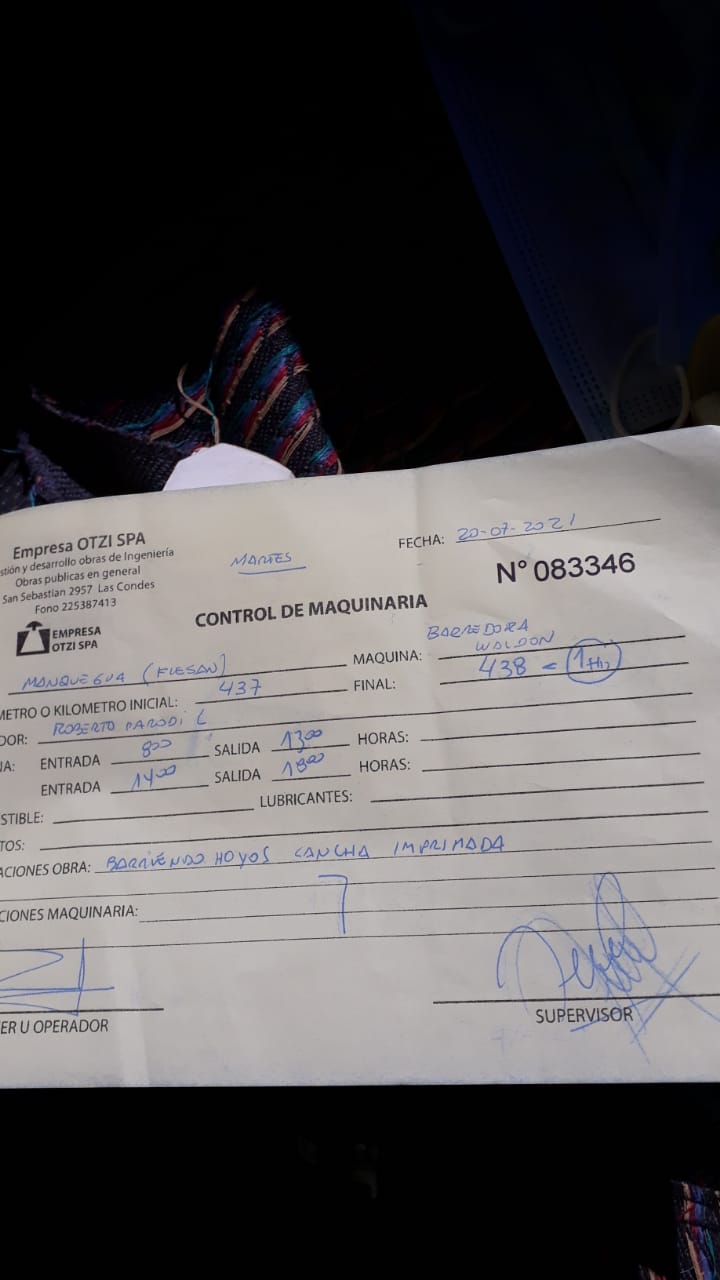 Empresa OTZI SPA
stión y desarrollo obras de Ingeniería
Obras publicas en general
San Sebastian 2957 Las Condes
Fono 225387413
EMPRESA
OTZI SPA
MARTES
FECHA: 20-07-2021
N° 083346
CONTROL DE MAQUINARIA
MANQUEGUA (FLESAN) MAQUINA: BARREDORA WALDON
METRO O KILOMETRO INICIAL: 437 FINAL: 438 = 1 Hr,
DOR: ROBERTO PARODI C
IA: ENTRADA 800 SALIDA 1300 HORAS:
ENTRADA 1400 SALIDA 1800 HORAS:
STIBLE: LUBRICANTES:
TOS:
ACIONES OBRA: BARRIENDO HOYOS CANCHA IMPRIMADA
CIONES MAQUINARIA:
ER U OPERADOR
SUPERVISOR